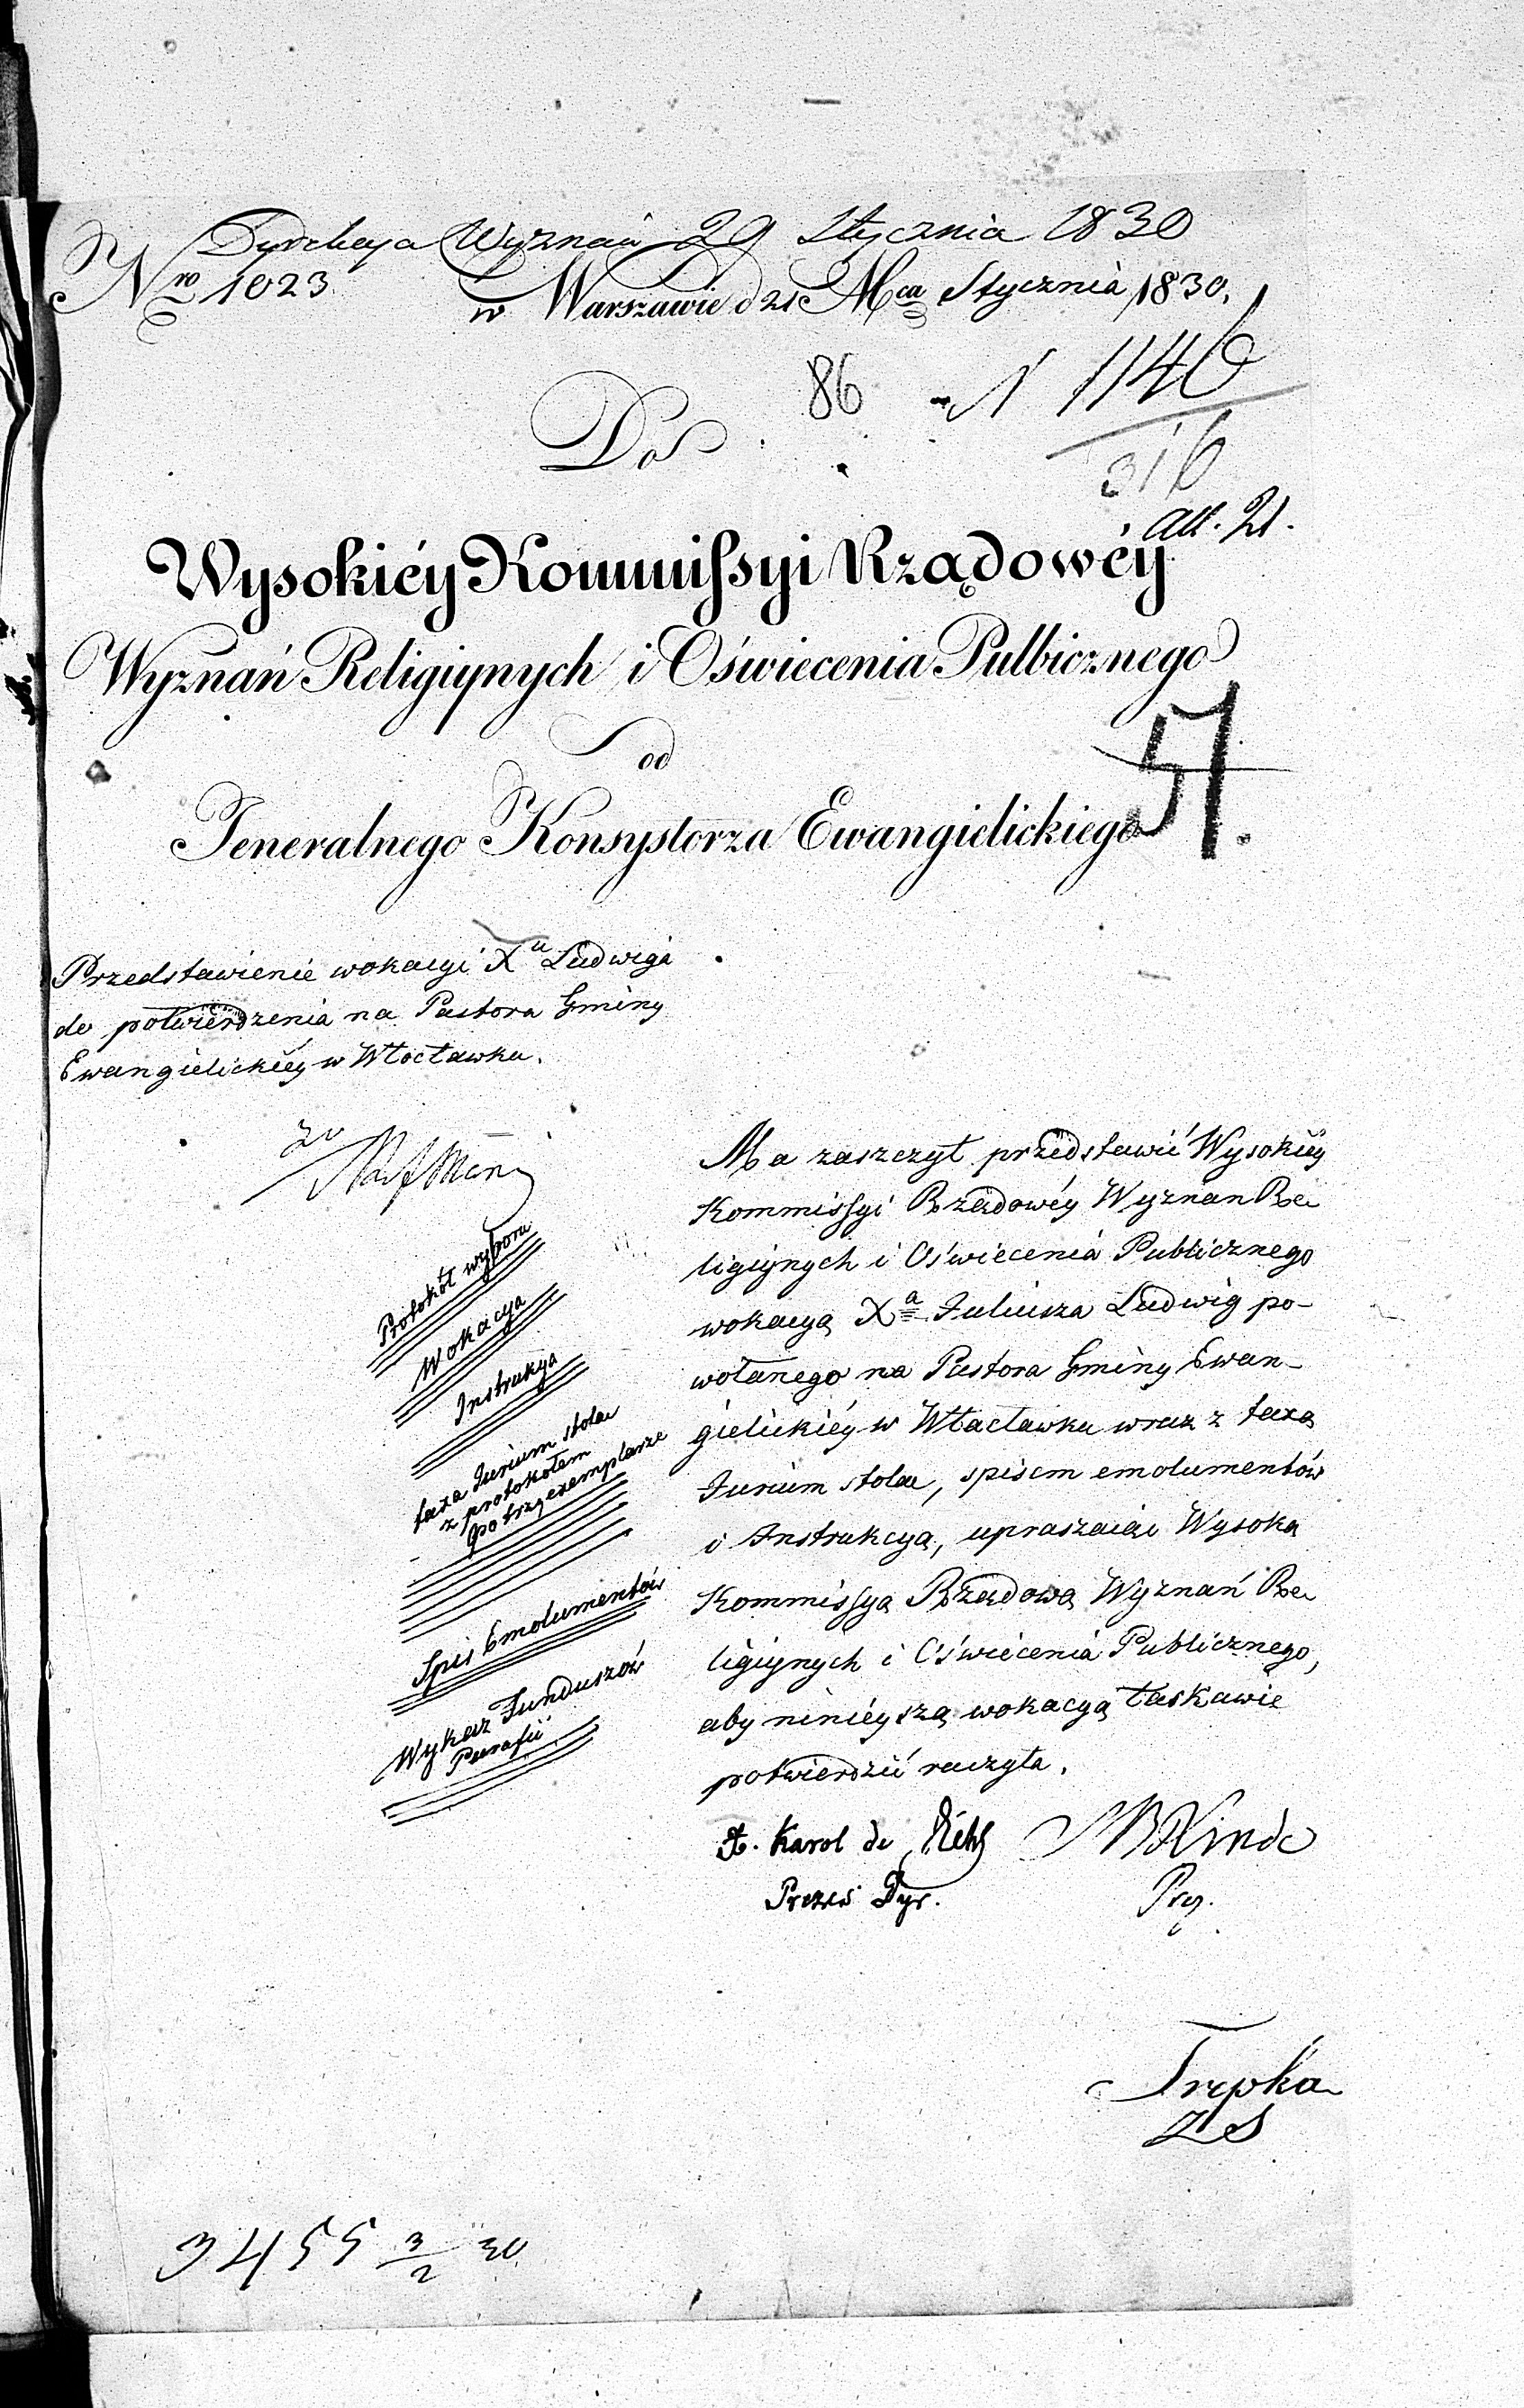 Dyrekcya Wyznań 29 Stycznia 1830
Nro 1023. w Warszawie d 21 Mca Stycznia 1830.
86 N 1146
316
Do
All. 21.
Wysokiéy Kommissyi Rządowéy
Wyznań Religiynych i Oświecenia Pulbicznego
od
51.
Jeneralnego Konsystorza Ewangielickiego
Przedstawienie wokacyi Xa Ludwiga
do potwierdzenia na Pastora Gminy
Ewangielickiéy w Włocławku.
Protokół wyboru
Wokacya
Instrukcya
taxa Jurium stolae
z protokołem
po trzy exemplarze
Spis Emolumentów
Wykaz Funduszów
Parafii
Ma zaszczyt przedstawić Wysokiéy
Kommissyi Rządowéy Wyznań Re
ligiynych i Oświecenia Publicznego
wokacyą Xa Juliusza Ludwig po-
wołanego na Pastora Gminy Ewan-
gielickiéy w Włacławku wraz z taxą
Jurium stolae, spisem emolumentów
i Instrukcyą, upraszaiąc Wysoką
Kommissyą Rządową Wyznań Re
ligiynych i Oświecenia Publicznego,
aby ninieyszą wokacyą łaskawie
potwierdzić raczyła.
X. Karol de Diehl
Prezes Dyr.
Trepka
ZS
3455 3/2 30